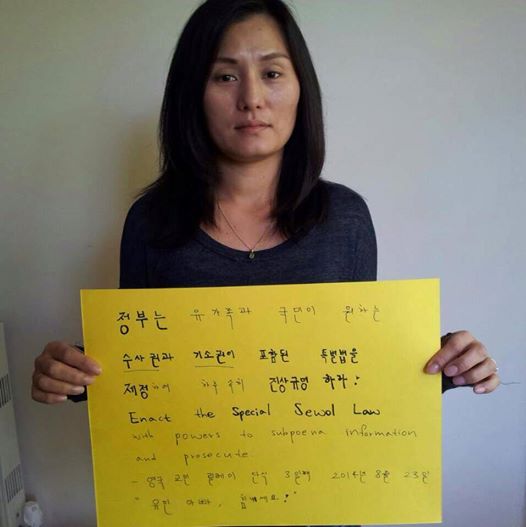 정부는 유가족과 국민이 원하는
수사권과 기소권이 포함된 특별법을
제정하여 하루 속히 진상규명 하라!
Enact the Special Sewol Law
with powers to subpoena information
and prosecute.
- 영국 교민 릴레이 단식 3일째 2014년 8월 23일
"유민 아빠, 힘내세요!"